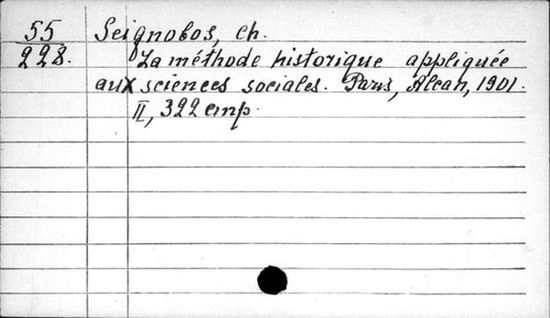 55 Seignobos, Ch.
228. La méthode historique appliquée
aux sciences sociales. Paris, Alcan, 1901.
II, 322 cmp.